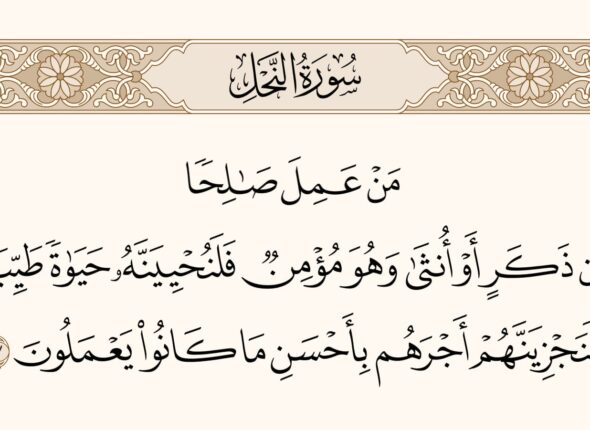 سُورَةُ النَّحْلِ
مَنْ عَمِلَ صَٰلِحًا
ذَكَرٍ أَوْ أُنثَىٰ وَهُوَ مُؤْمِنٌ فَلَنُحْيِيَنَّهُۥ حَيَوٰةً
أَجْرَهُم بِأَحْسَنِ مَا كَانُوا۟ يَعْمَلُونَ